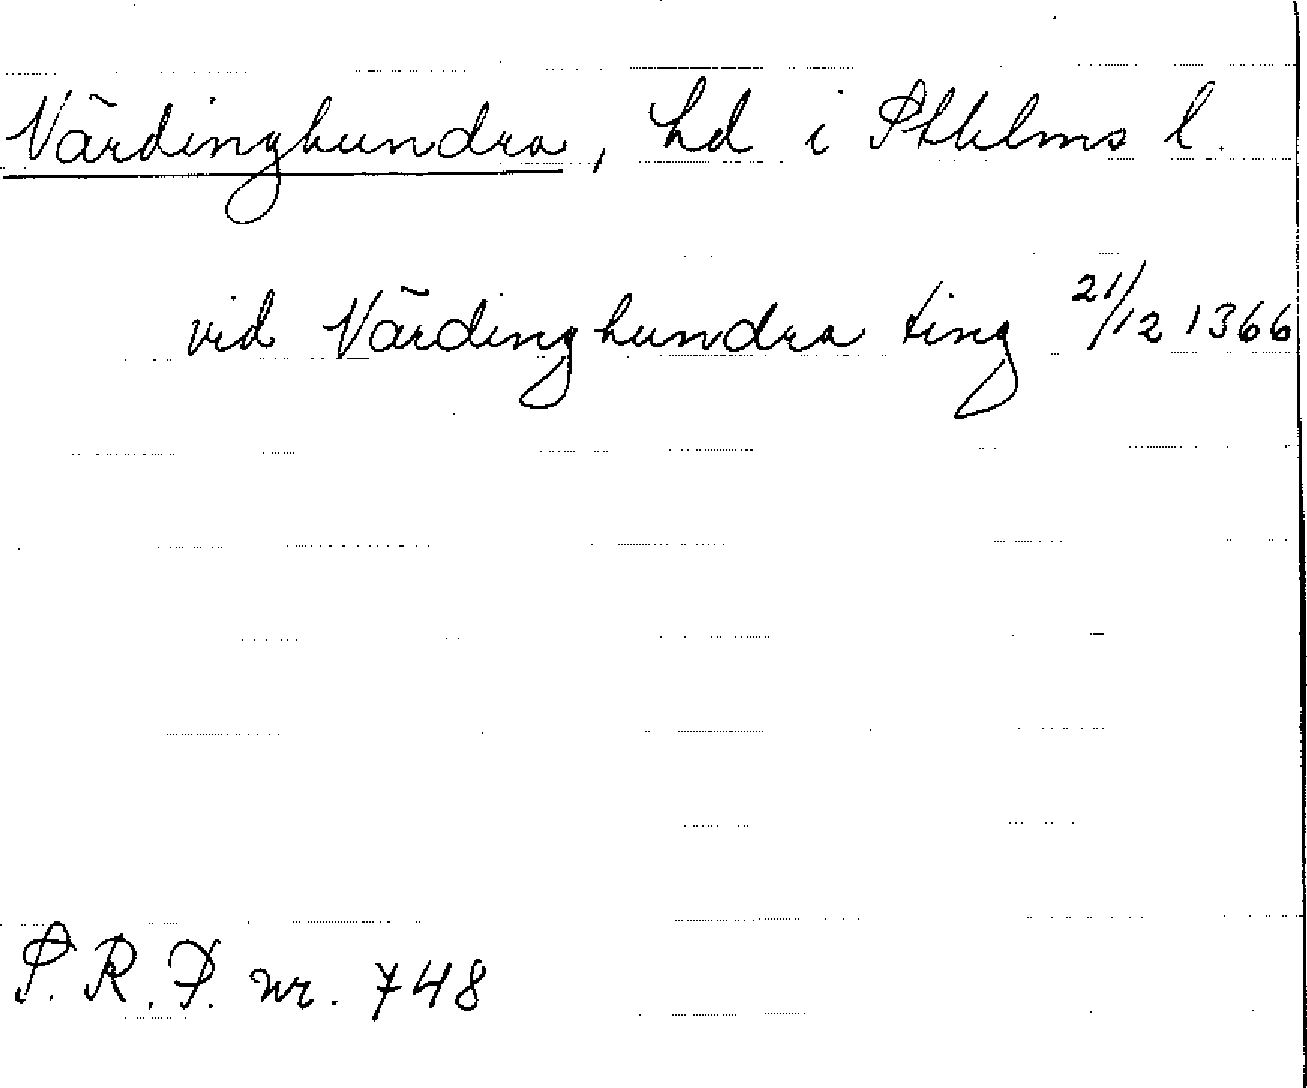 Närdinghundra, hd i Sthlms l.
vid Närdinghundra ting 21/12 1366
S.R.P. nr. 748